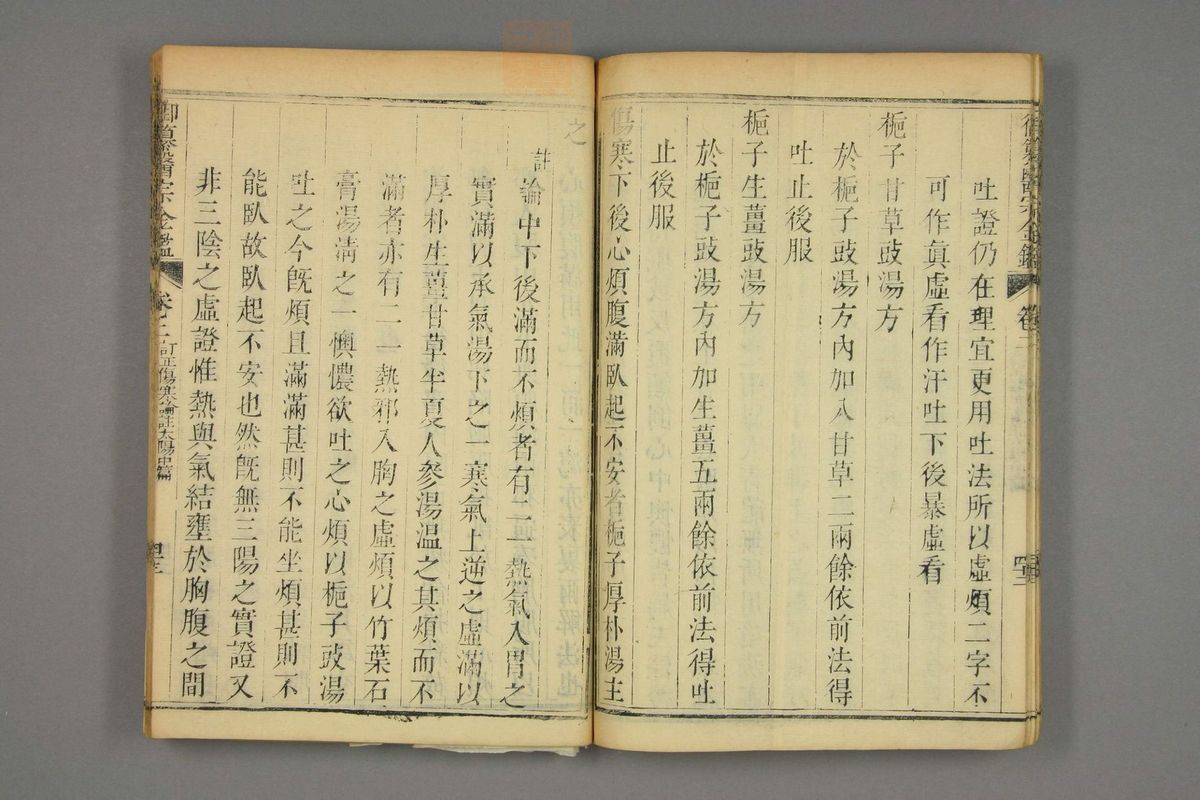 御纂醫宗金鑑 卷二 四十二
吐證仍在理宜更用吐法所以虛煩二字不
可作眞虛看作汗吐下後暴虛看
梔子甘草豉湯方
於梔子豉湯方內加入甘草二兩餘依前法得
吐止後服
梔子生薑豉湯方
於梔子豉湯方內加生薑五兩餘依前法得吐
止後服
傷寒下後心煩腹滿臥起不安者梔子厚朴湯主
之
註論中下後滿而不煩者有二一熱氣入胃之
實滿以承氣湯下之一寒氣上逆之虛滿以
厚朴生薑甘草半夏人參湯溫之其煩而不
滿者亦有二一熱邪入胸之虛煩以竹葉石
膏湯淸之一懊憹欲吐之心煩以梔子豉湯
吐之今旣煩且滿滿甚則不能坐煩甚則不
能臥故臥起不安也然旣無三陽之實證又
非三陰之虛證惟熱與氣結壅於胸腹之間
御纂醫宗金鑑 卷二 訂正傷寒論註太陽中篇